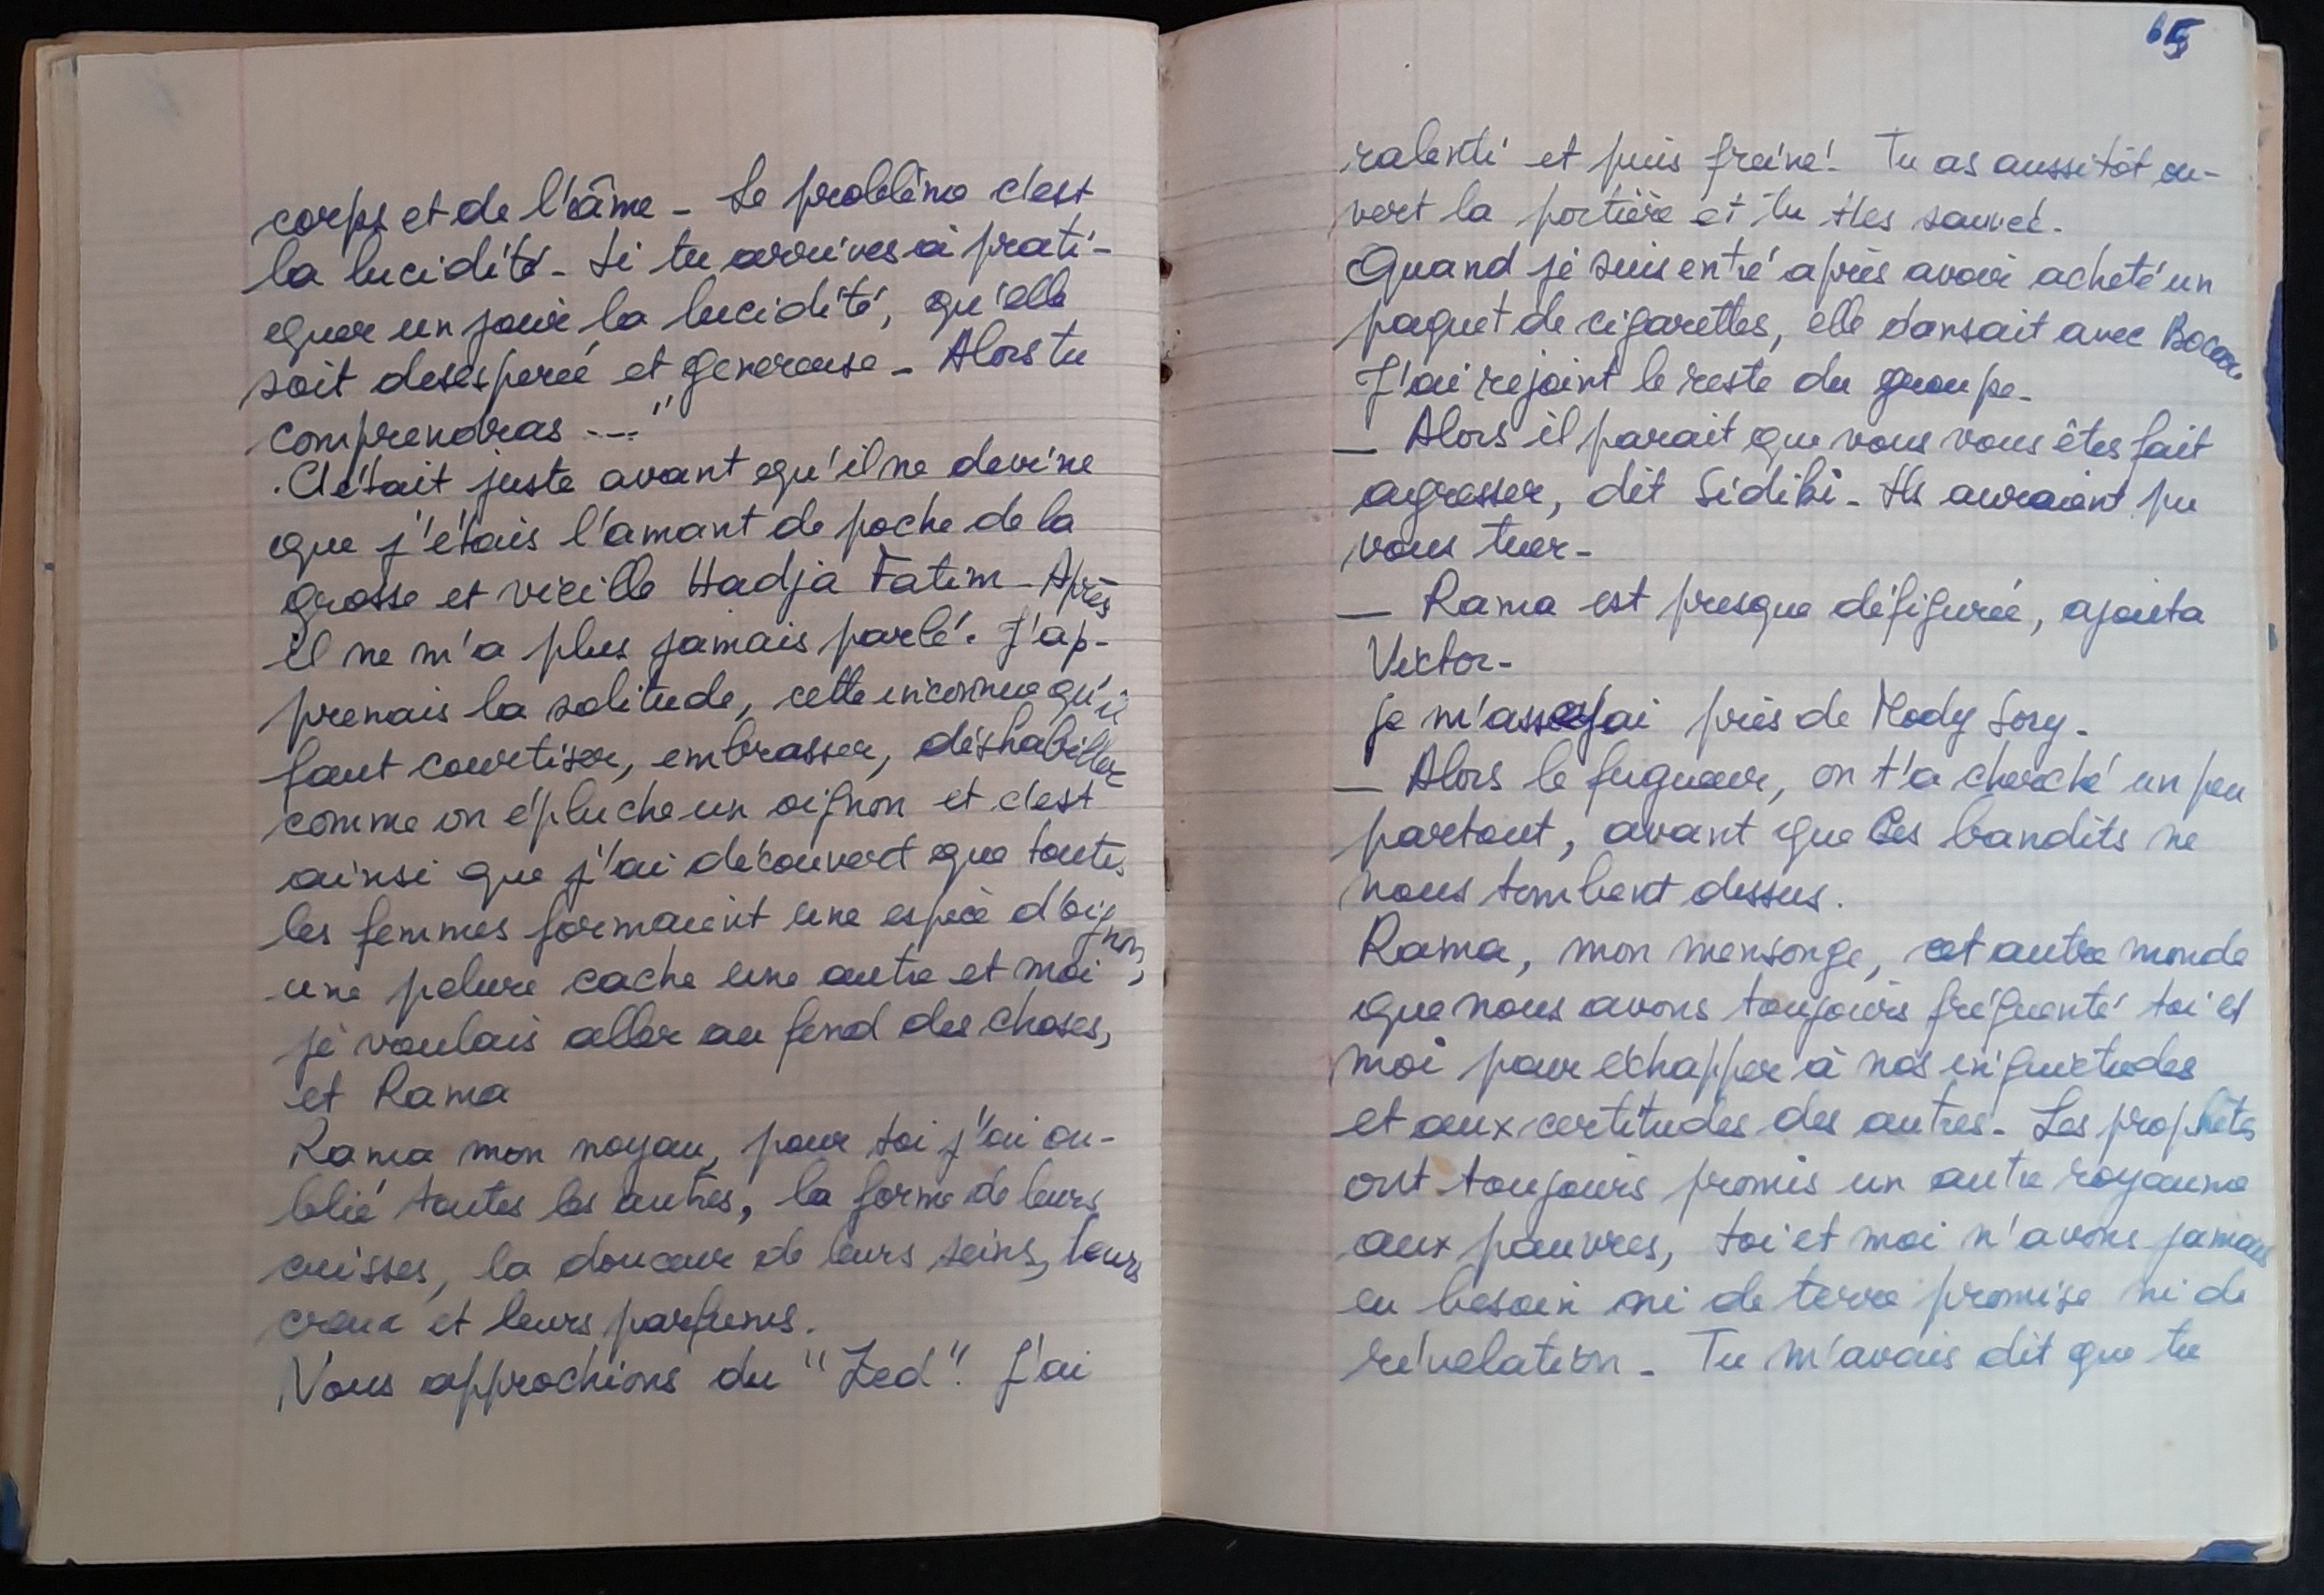 corps et de l'âme - Le problème c'est
la lucidité - Si tu arrives à prati-
quer un jour la lucidité, qu'elle
soit desesperée et genereuse - Alors tu
comprendras ---"
. C'était juste avant qu'il ne devine
que j'étais l'amant de poche de la
grosse et vieille Hadja Fatim - Après
il ne m'a plus jamais parlé. J'ap-
prenais la solitude, cette inconnue qu'il
faut courtiser, embrasser, déshabiller
comme on épluche un oignon et c'est
ainsi que j'ai découvert que toutes
les femmes formaient une espèce d'oignon,
une pelure cache une autre et moi
je voulais aller au fond des choses,
et Rama
Rama mon noyau, pour toi j'ai ou-
blié toutes les autres, la forme de leurs
cuisses, la douceur de leurs seins, leurs
creux et leurs parfums.
Nous approchions du "Zed". J'ai
65
ralenti et puis freiné. Tu as aussitôt ou-
vert la portière et tu t'es sauvée.
Quand je suis entré après avoir acheté un
paquet de cigarettes, elle dansait avec
J'ai rejoint le reste du groupe.
— Alors il parait que vous vous êtes fait
agresser, dit Sidibi - Ils auraient pu
vous tuer -
— Rama est presque défigurée, ajouta
Victor -
je m'asseyai près de Mody Sory -
— Alors le fugueur, on t'a cherché un peu
partout, avant que ces bandits ne
nous tombent dessus.
Rama, mon mensonge, cet autre monde
que nous avons toujours fréquenté toi et
moi pour échapper à nos inquietudes
et aux certitudes des autres - Les prophètes
ont toujours promis un autre royaume
aux pauvres, toi et moi n'avons jamais
eu besoin ni de terre promise ni de
révelation - Tu m'avais dit que tu